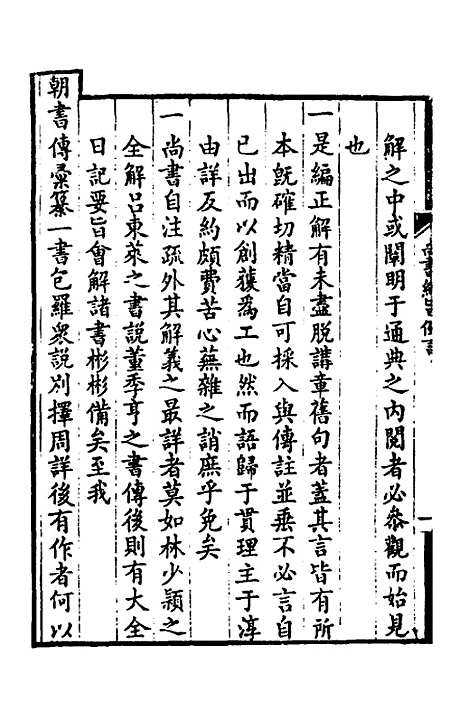 解之中或闡明于通典之内閱者必參觀而始見
也
一是編正解有未盡脱講章舊句者蓋其言皆有所
本旣確切精當自可採入與傳註並垂不必言自
已出而以創獲為工也然而語歸于貫理主于淳
由詳反約頗費苦心蕪雜之誚庶乎免矣
一尚書自注疏外其解義之最詳者莫如林少潁之
全解呂東萊之書說董季亨之書傳後則有大全
日記要旨會解諸書彬彬備矣至我
朝書傳彚纂一書包羅衆說別擇周詳後有作者何以